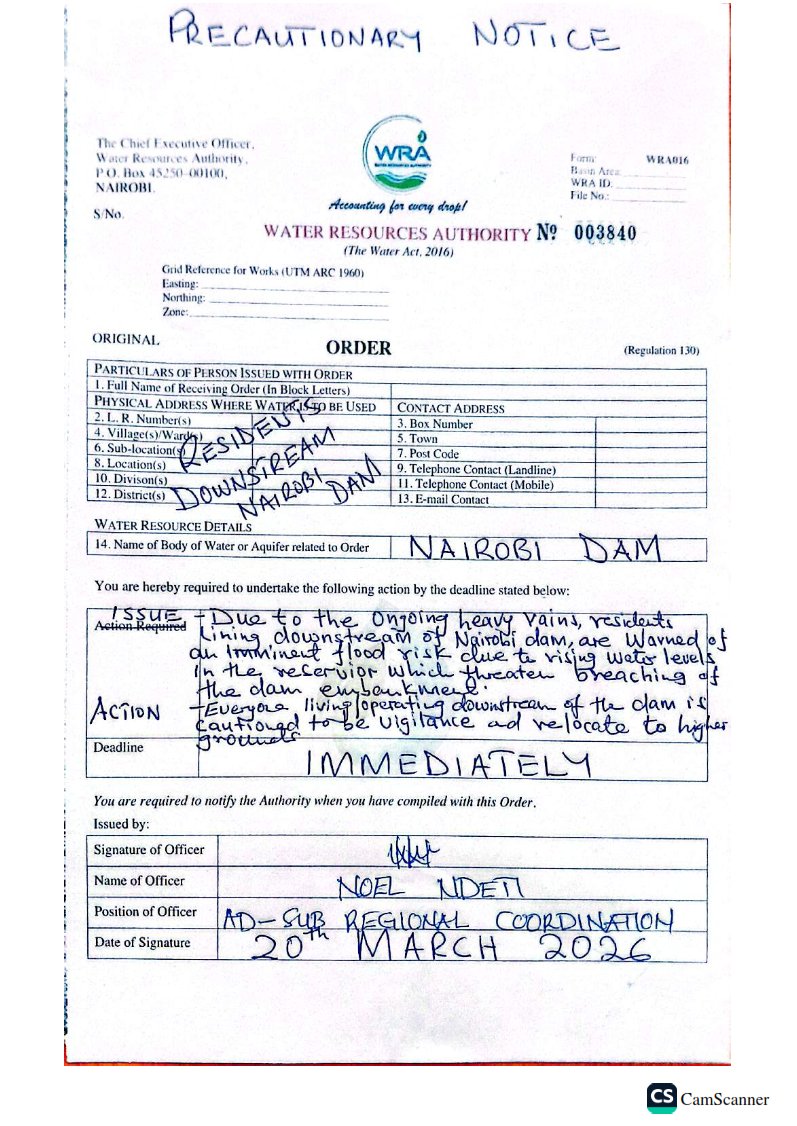 PRECAUTIONARY NOTICE
The Chief Executive Officer,
Water Resources Authority,
P O. Box 45250-00100,
NAIROBI.
S/No.
WRA
WATER RESOURCES AUTHORITY
Accounting for every drop!
Form: WRA016
Basin Area:
WRA ID:
File No.:
WATER RESOURCES AUTHORITY № 003840
(The Water Act, 2016)
Grid Reference for Works (UTM ARC 1960)
Easting:
Northing:
Zone:
ORIGINAL
ORDER
(Regulation 130)
PARTICULARS OF PERSON ISSUED WITH ORDER
1. Full Name of Receiving Order (In Block Letters)
PHYSICAL ADDRESS WHERE WATER IS TO BE USED
CONTACT ADDRESS
2. L. R. Number(s)
3. Box Number
4. Village(s)/Ward(s)
5. Town
6. Sub-location(s)
7. Post Code
8. Location(s)
9. Telephone Contact (Landline)
10. Divison(s)
11. Telephone Contact (Mobile)
12. District(s)
13. E-mail Contact
RESIDENTS
DOWNSTREAM
NAIROBI DAM
WATER RESOURCE DETAILS
14. Name of Body of Water or Aquifer related to Order NAIROBI DAM
You are hereby required to undertake the following action by the deadline stated below:
ISSUE
Action Required
- Due to the Ongoing heavy rains, residents
lining downstream of Nairobi dam, are warned of
an imminent flood risk due to rising water levels
in the reservior which threaten breaching of
the dam embankment.
ACTION - Everyone living/operating downstream of the dam is
cautioned to be vigilance ad relocate to higher
grounds
Deadline IMMEDIATELY
You are required to notify the Authority when you have compiled with this Order.
Issued by:
Signature of Officer
Name of Officer NOEL NDETI
Position of Officer AD-SUB REGIONAL COORDINATION
Date of Signature 20th MARCH 2026
CS CamScanner